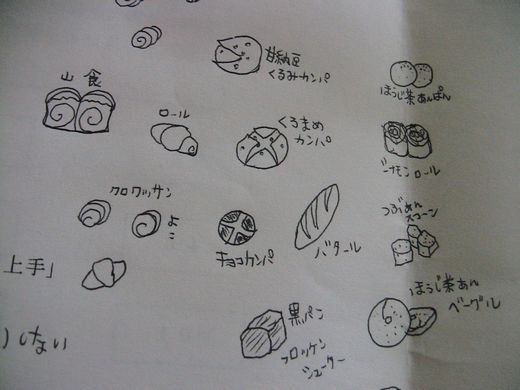 甘納豆
くるみカンパ
山食
ほうじ茶あんぱん
ロール
くるまめ
カンパ
シナモンロール
クロワッサン
よこ
つぶあん
スコーン
チョコカンパ
バタール
上手」
ほうじ茶あん
ベーグル
黒パン
しない